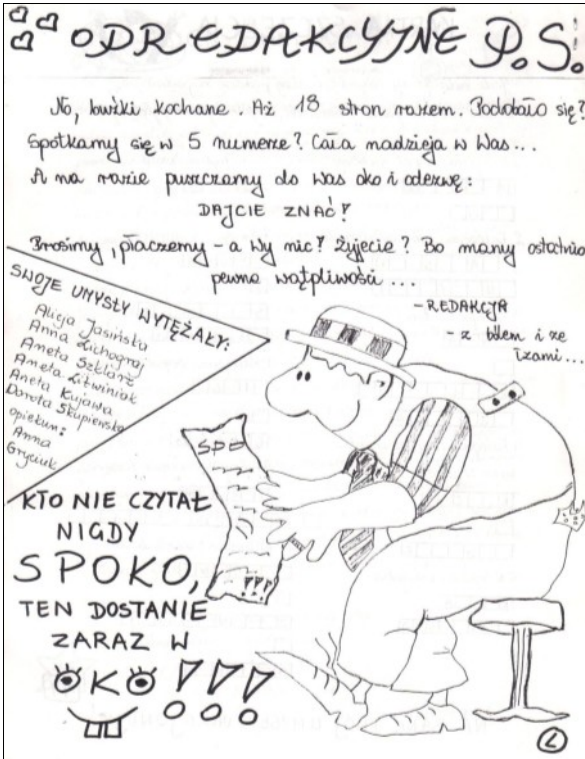 ODREDAKCYJNE P.S.!
No, buźki kochane. Aż 18 stron razem. Podobało się?
Spotkamy się w 5 numerze? Cała nadzieja w Was...
A na razie puszczamy do Was oko i odezwę:
DAJCIE ZNAĆ!
Prosimy, płaczemy - a Wy nic? Żyjecie? Bo mamy ostatnio
pewne wątpliwości....
- REDAKCJA
- z bólem i ze
łzami...
SWOJE UMYSŁY WYTĘŻAŁY:
Alicja Jasińska
Anna Lichograj
Aneta Szklarz
Aneta Litwiniak
Aneta Kujawa
Dorota Skupieńska
opiekun:
Anna
Gryciuk
SPO
KTO NIE CZYTAŁ
NIGDY
SPOKO,
TEN DOSTANIE
ZARAZ W
OKO!!!
L